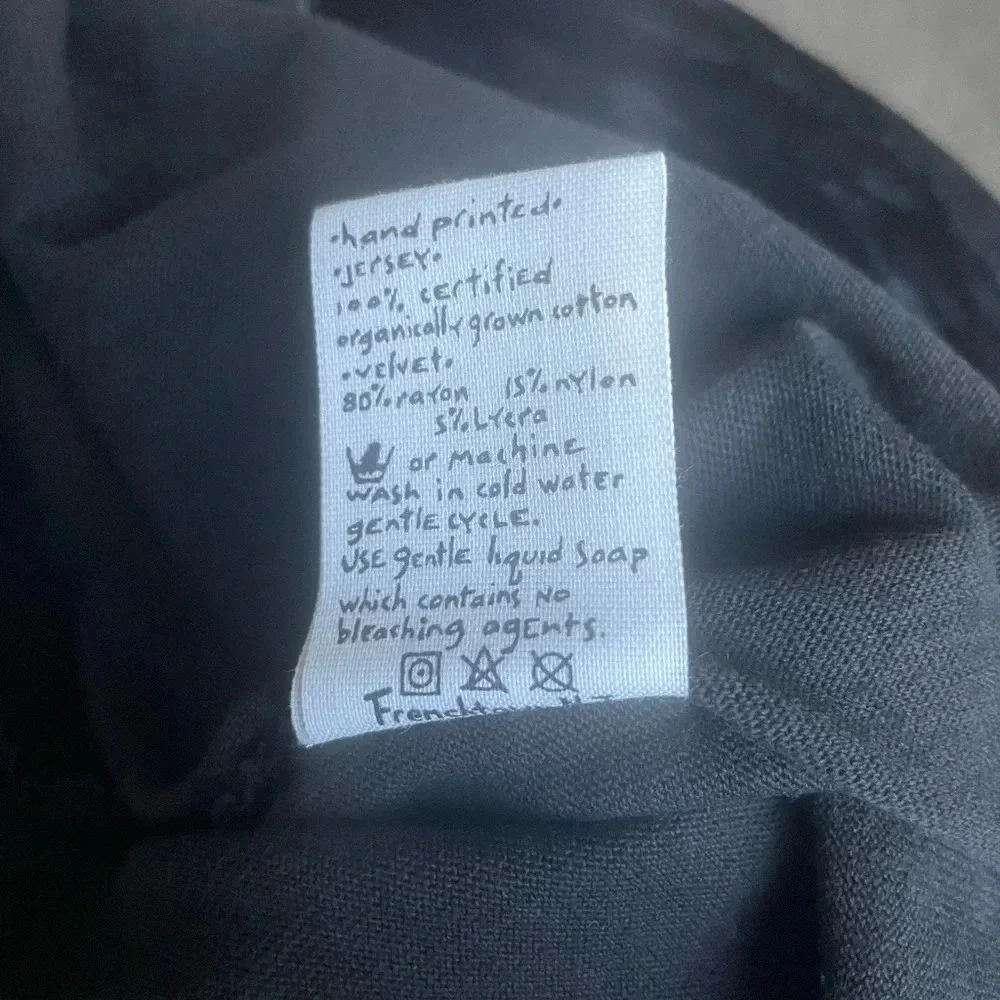 •hand printed•
•JERSEY•
100% certified
organically grown cotton
•velvet•
80% rayon 15% nylon
5% Lycra
or machine
wash in cold water
gentle cycle.
Use gentle liquid soap
which contains no
bleaching agents.